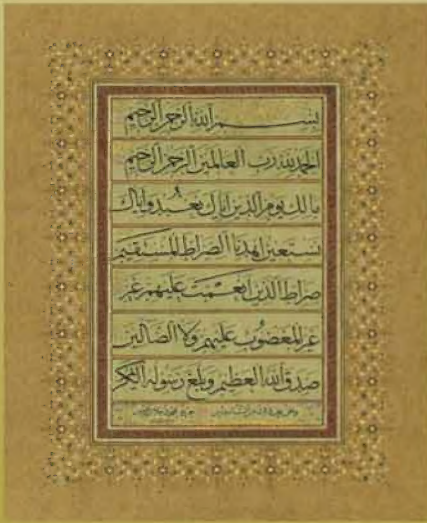 بسم الله الرحمن الرحيم
الحمد لله رب العالمين الرحمن الرحيم
مالك يوم الدين اياك نعبد واياك
نستعين اهدنا الصراط المستقيم
صراط الذين انعمت عليهم غير
غير المغضوب عليهم ولا الضالين
صدق الله العظيم وبلغ رسوله الكريم